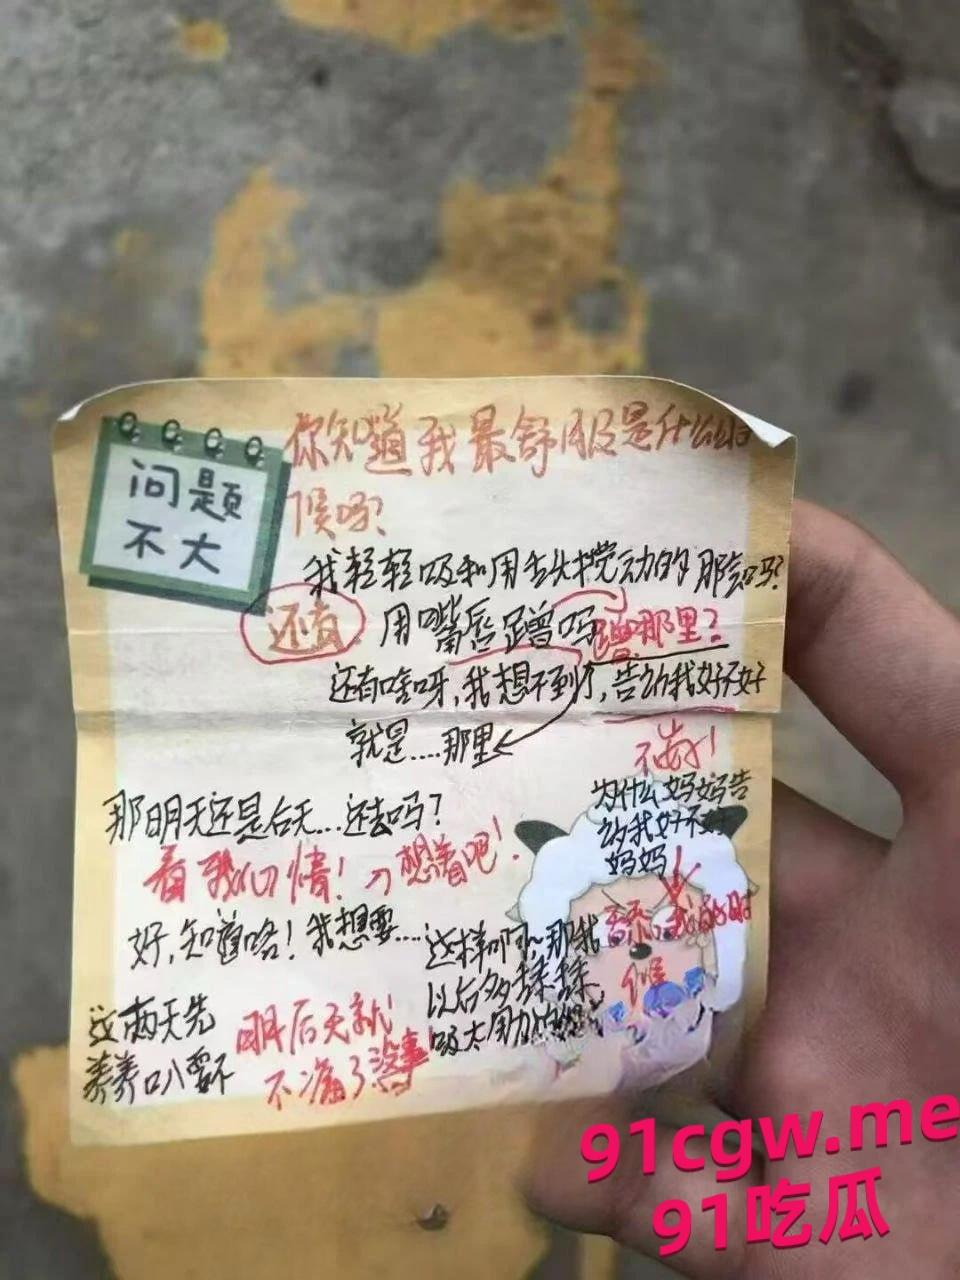 问题
不大
你知道我最舒服是什么时
候吗?
我轻轻吸和用舌头搅动的那会吗?
还有 用嘴唇蹭吗 蹭那里?
还有啥呀,我想不到了,告诉我好不好
就是....那里
不告!
为什么妈妈告
诉我好不好
妈妈
那明天还是后天...还去吗?
看我心情! 想着吧!
好,知道咯!我想要....
这样啊~那我
以后多揉揉
吸太用力
我的时
候
这两天先
养养
明后天就
不痛了没事
91cgw.me
91吃瓜